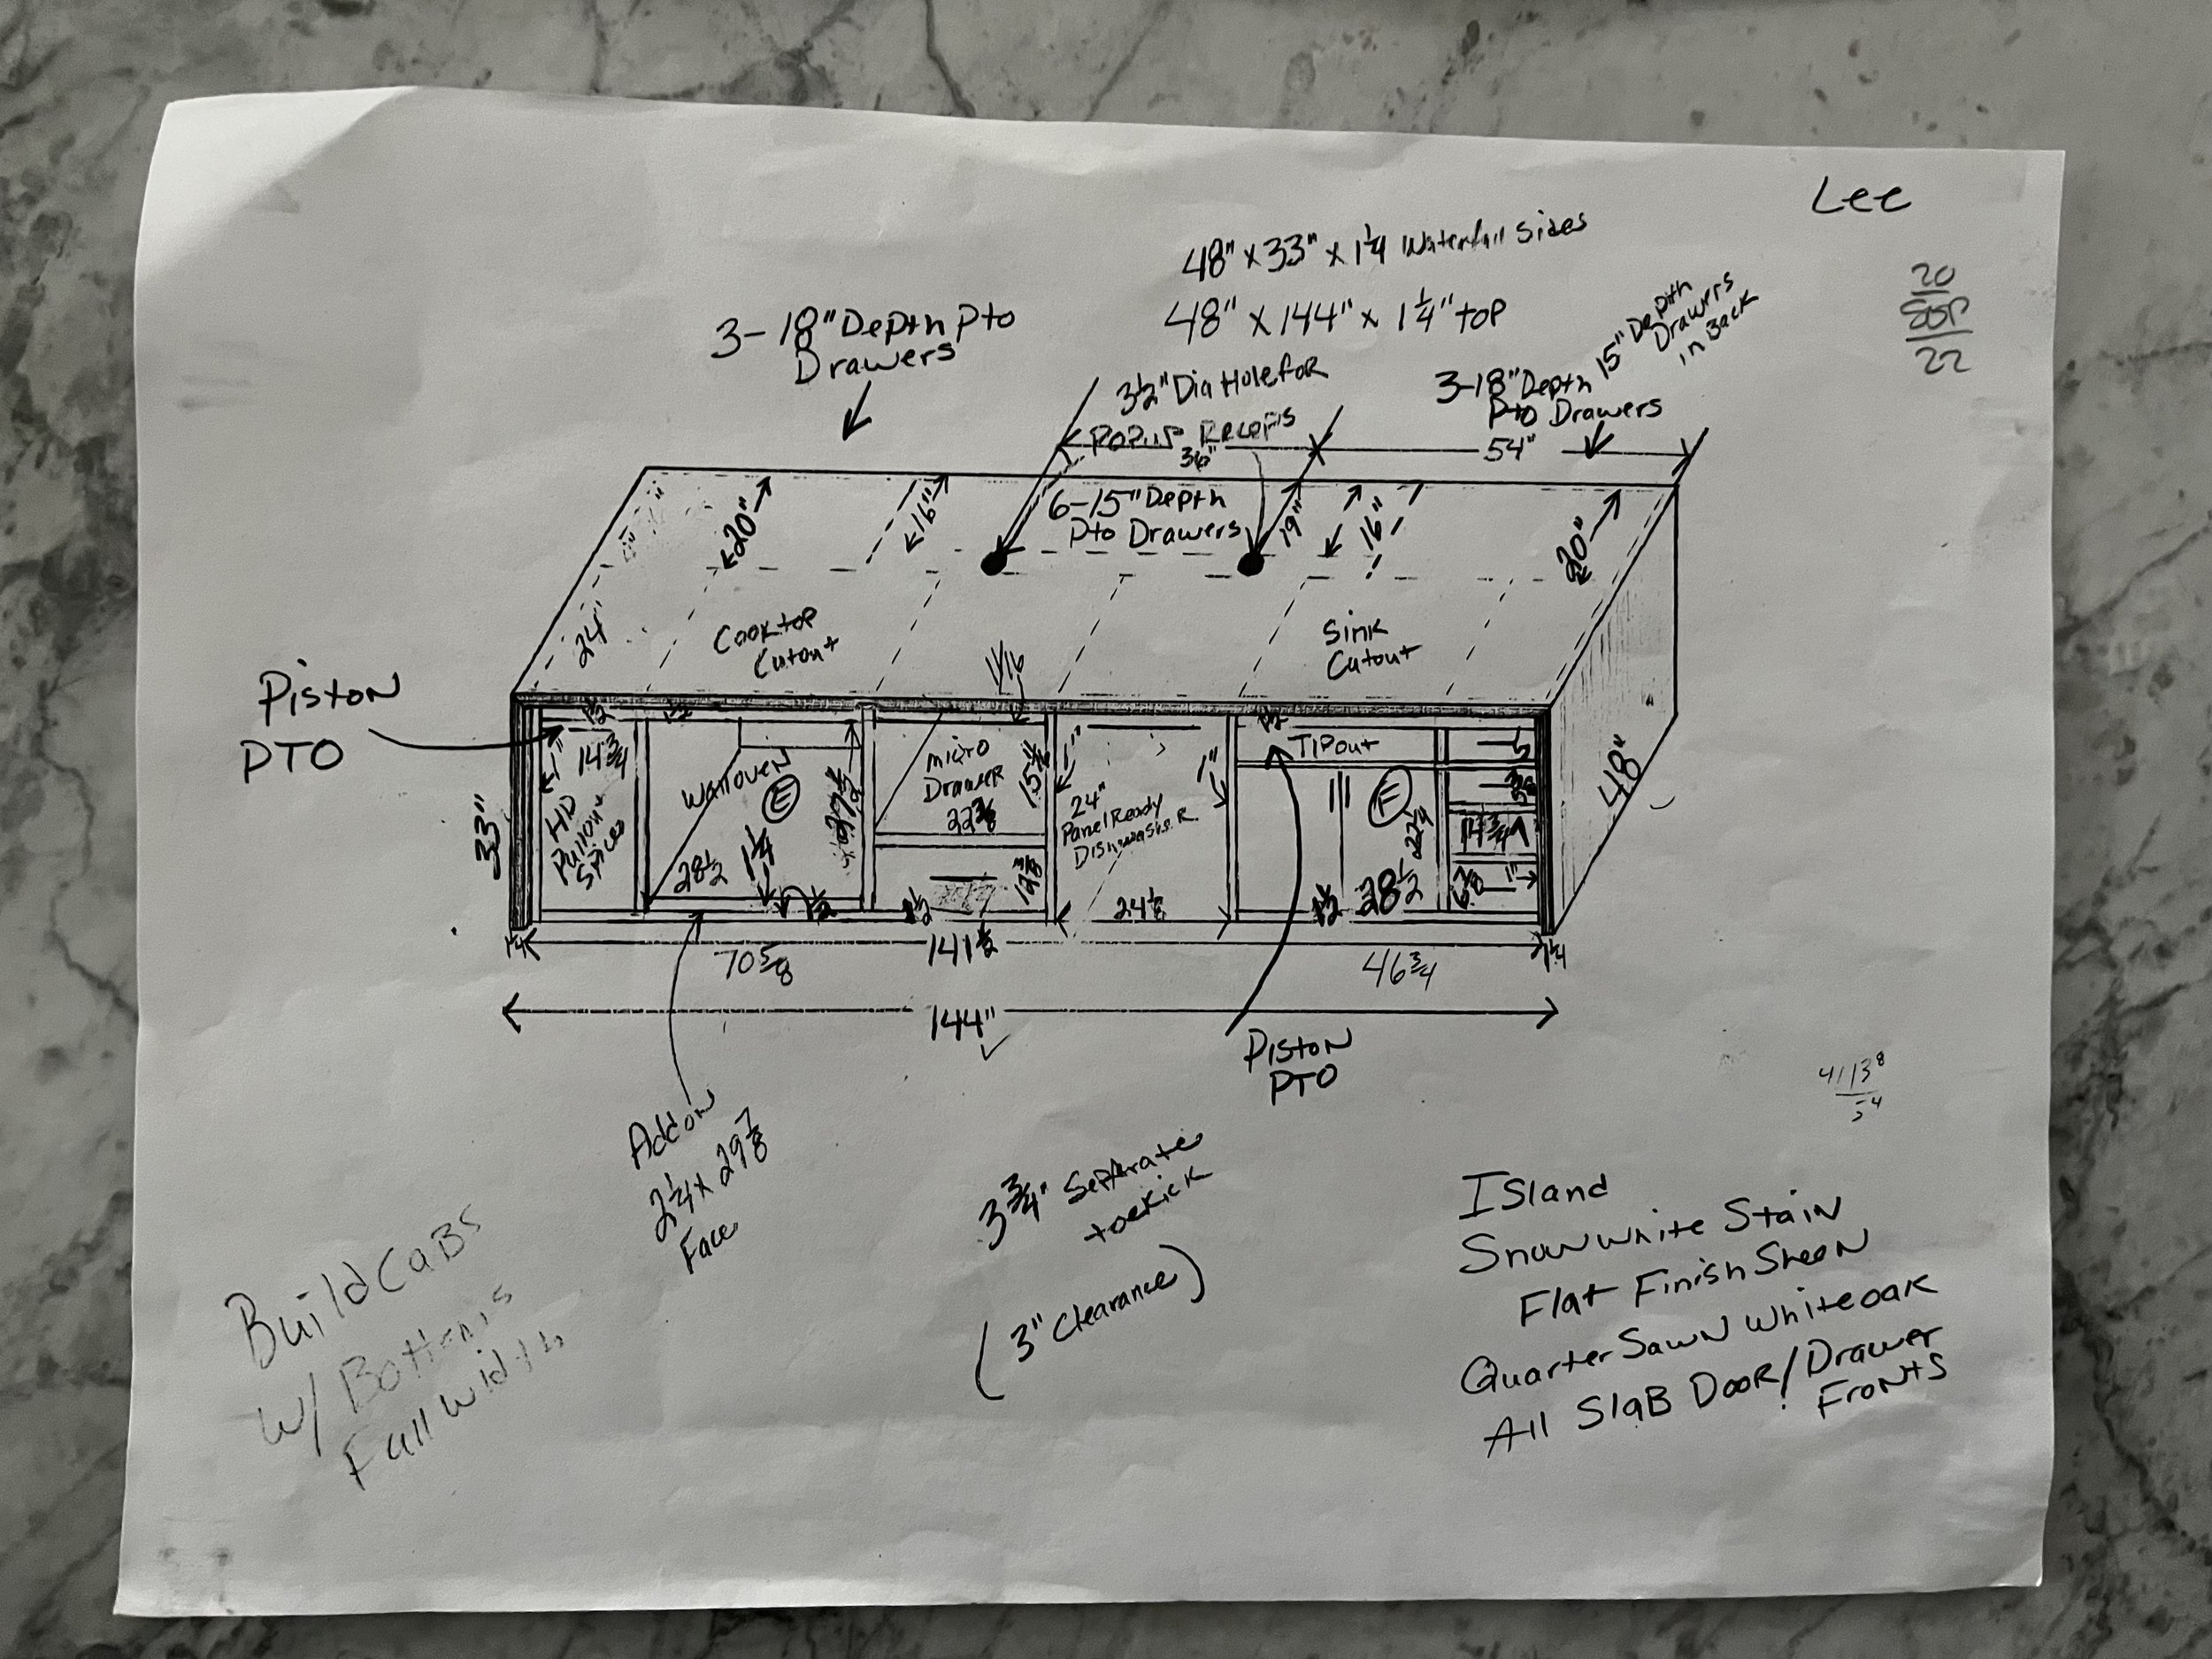 Lee
20
SEP
22
48" x 33" x 1 1/4 Waterfall Sides
48" x 144" x 1 1/4" top
3-18" Depth Pto
Drawers
15" Depth
Drawers
in Back
3 1/2" Dia Hole for
Popup Recepts
36"
3-18" Depth
Pto Drawers
54"
6-15" Depth
Pto Drawers
20"
16"
19"
16"
20"
24"
Cooktop
Cutout
Sink
Cutout
1 1/16
Piston
PTO
33"
48"
1 1/2
1 1/2
1 1/2
14 3/4
1"
HD
Pullout
Spices
Walloven
E
28 1/2
1 1/4
27 1/2
1 1/2
Micro
Drawer
22 3/8
1 1/2
1"
24"
Panel Ready
Dishwasher
24 1/8
1"
Tipout
E
22 1/4
1 1/2
28 1/2
5
14 3/4
1"
1 1/4
70 5/8
141 1/2
46 3/4
1 1/4
144"
Piston
PTO
Addon
2 1/4 x 29 7/8
Face
3 3/4" Separate
toekick
(3" Clearance)
Build CaBS
w/ Bottoms
Full width
Island
Snowwhite Stain
Flat Finish Sheen
Quarter Sawn Whiteoak
All SlaB Door/Drawer
Fronts